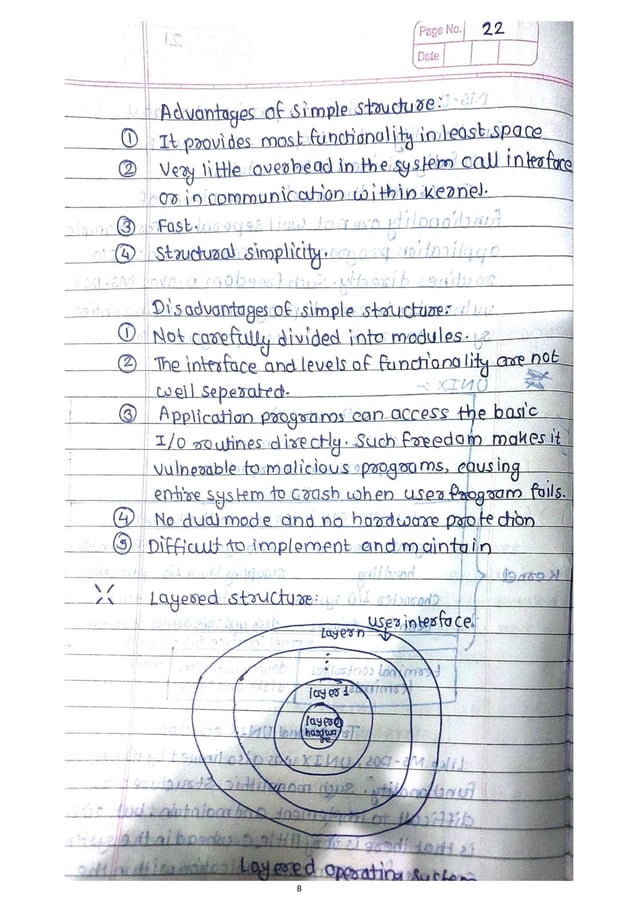 Page No. 22
Date
Advantages of simple structure:
① It provides most functionality in least space
② Very little overhead in the system call interface
or in communication within kernel.
③ Fast.
④ Structural simplicity.
Disadvantages of simple structure:
① Not carefully divided into modules.
② The interface and levels of functionality are not
well seperated.
③ Application programs can access the basic
I/O routines directly. Such freedom makes it
vulnerable to malicious programs, causing
entire system to crash when user program fails.
④ No dual mode and no hardware protection
⑤ Difficult to implement and maintain
Layered structure:
user interface
layer n
layer 1
layer 0
hardware
Layered operating system
8